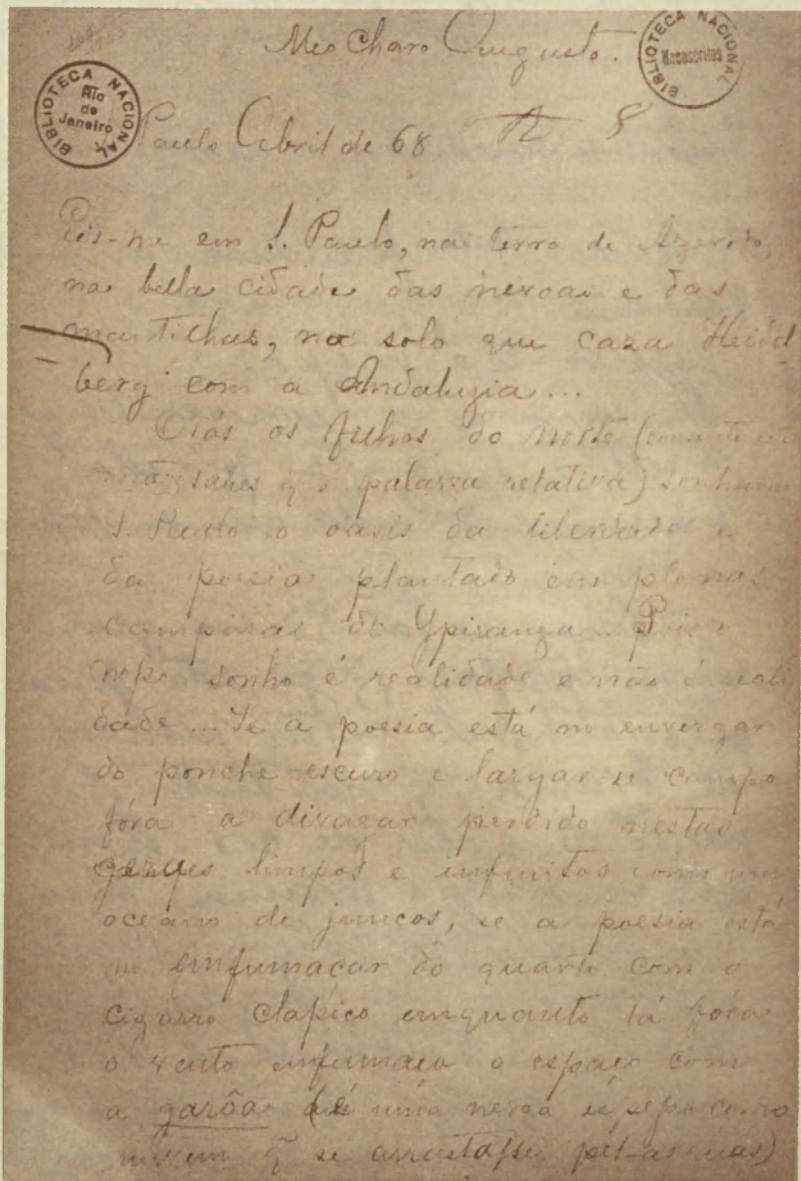 Meo Charo Augusto.
BIBLIOTECA NACIONAL
Manuscritos
BIBLIOTECA NACIONAL
Rio
de
Janeiro
Paulo Abril de 68
Eis-me em S. Paulo, na terra de Azevedo,
na bella cidade das nevoas e das
mantilhas, no solo que caza Heidel
berg com a Andaluzia...
Nós os filhos do norte
sabes q̃ é palavra relativa) sonhamos
S. Paulo o oasis da liberdade e
da poesia plantado em plenas
campinas do Ypiranga... Pois o
nosso sonho é realidade e não é reali
dade... Se a poesia está no envergar
do ponche escuro e largar-se campo
fóra a divagar perdido nestes
geraes limpos e infinitos como um
oceano de juncos, se a poesia está
no enfumaçar do quarto com o
cigarro classico emquanto lá fóra
o vento enfumaça o espaço com
a garôa (é uma nevoa espessa como
nuvem q̃ se arrastasse pelas ruas)